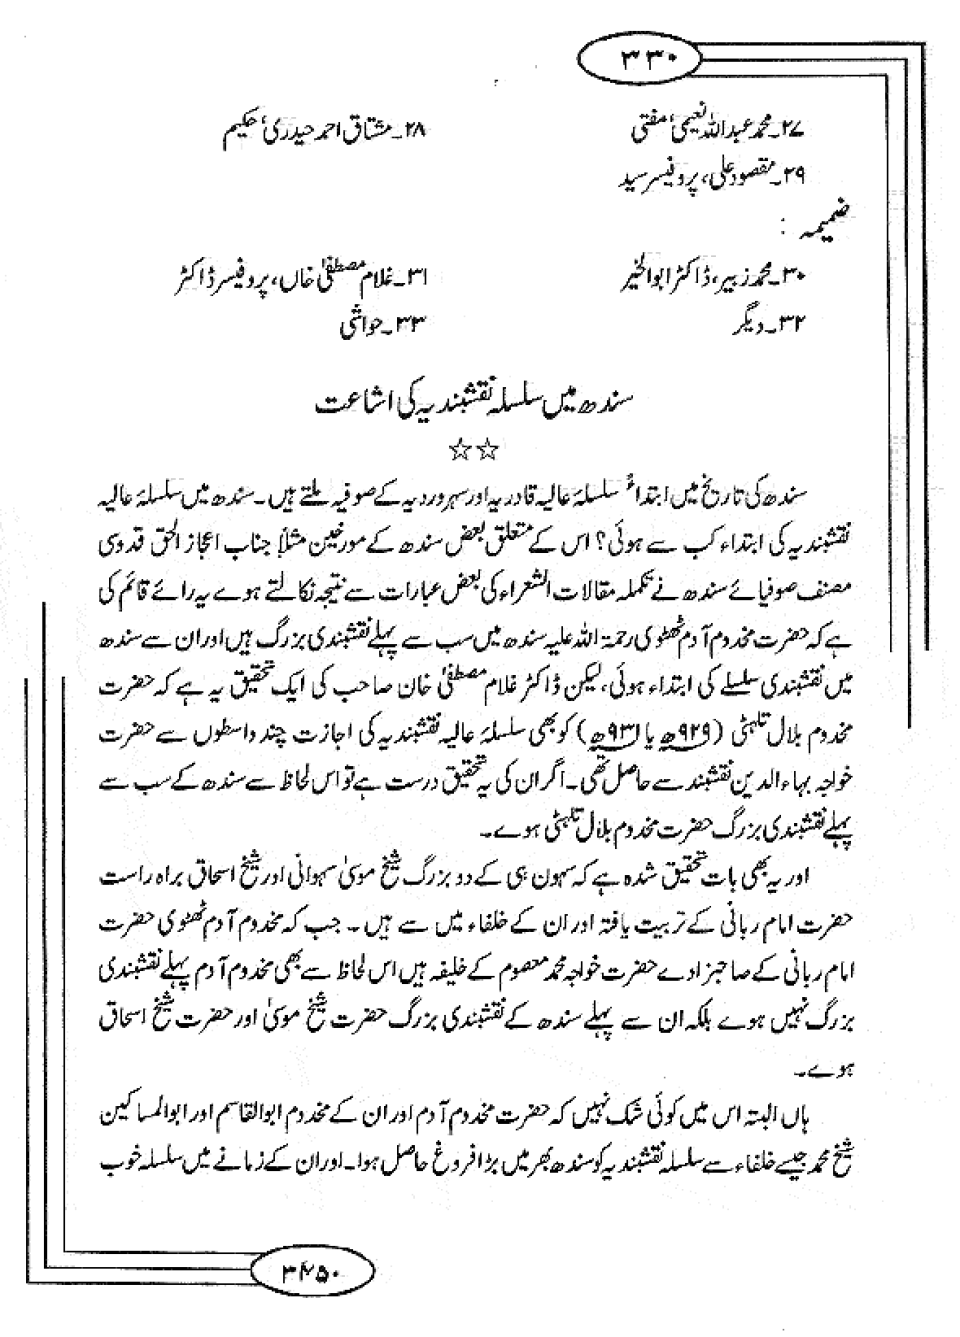 ۳۳۰
۲۷۔محمد عبداللہ نعیمی، مفتی ۲۸۔مشتاق احمد حیدری، حکیم
۲۹۔مقصود علی، پروفیسر سید
ضمیمہ :
۳۰۔محمد زبیر، ڈاکٹر ابوالخیر ۳۱۔غلام مصطفیٰ خاں، پروفیسر ڈاکٹر
۳۲۔دیگر ۳۳۔حواشی
سندھ میں سلسلہ نقشبندیہ کی اشاعت
☆☆
سندھ کی تاریخ میں ابتداءً سلسلۂ عالیہ قادریہ اور سہروردیہ کے صوفیہ ملتے ہیں۔ سندھ میں سلسلۂ عالیہ
نقشبندیہ کی ابتداء کب سے ہوئی؟ اس کے متعلق بعض سندھ کے مورخین مثلاً جناب اعجاز الحق قدوسی
مصنف صوفیائے سندھ نے تکملہ مقالات الشعراء کی بعض عبارات سے نتیجہ نکالتے ہوے یہ رائے قائم کی
ہے کہ حضرت مخدوم آدم ٹھٹوی رحمۃ اللہ علیہ سندھ میں سب سے پہلے نقشبندی بزرگ ہیں اور ان سے سندھ
میں نقشبندی سلسلے کی ابتداء ہوئی، لیکن ڈاکٹر غلام مصطفیٰ خان صاحب کی ایک تحقیق یہ ہے کہ حضرت
مخدوم بلال تلہٹی (۹۲۹ھ یا ۹۳۱ھ) کو بھی سلسلۂ عالیہ نقشبندیہ کی اجازت چند واسطوں سے حضرت
خواجہ بہاء الدین نقشبند سے حاصل تھی۔ اگر ان کی یہ تحقیق درست ہے تو اس لحاظ سے سندھ کے سب سے
پہلے نقشبندی بزرگ حضرت مخدوم بلال تلہٹی ہوے۔
اور یہ بھی بات تحقیق شدہ ہے کہ سہون ہی کے دو بزرگ شیخ موسیٰ سہوانی اور شیخ اسحاق براہ راست
حضرت امام ربانی کے تربیت یافتہ اور ان کے خلفاء میں سے ہیں۔ جب کہ مخدوم آدم ٹھٹوی حضرت
امام ربانی کے صاحبزادے حضرت خواجہ محمد معصوم کے خلیفہ ہیں اس لحاظ سے بھی مخدوم آدم پہلے نقشبندی
بزرگ نہیں ہوے بلکہ ان سے پہلے سندھ کے نقشبندی بزرگ حضرت شیخ موسیٰ اور حضرت شیخ اسحاق
ہوے۔
ہاں البتہ اس میں کوئی شک نہیں کہ حضرت مخدوم آدم اور ان کے مخدوم ابوالقاسم اور ابوالمساکین
شیخ محمد جیسے خلفاء سے سلسلہ نقشبندیہ کو سندھ بھر میں بڑا فروغ حاصل ہوا۔ اور ان کے زمانے میں سلسلہ خوب
۳۴۵۰